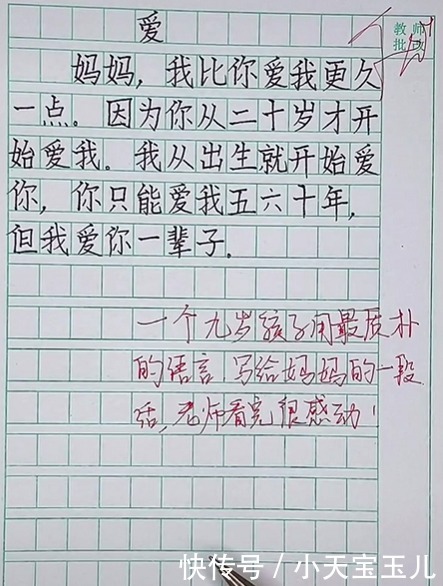 爱
教师
批改
妈妈，我比你爱我更久
一点。因为你从二十岁才开
始爱我。我从出生就开始爱
你，你只能爱我五六十年，
但我爱你一辈子.
一个九岁孩子用最质朴
的语言，写给妈妈的一段
话，老师看完很感动！
快传号 / 小天宝玉儿